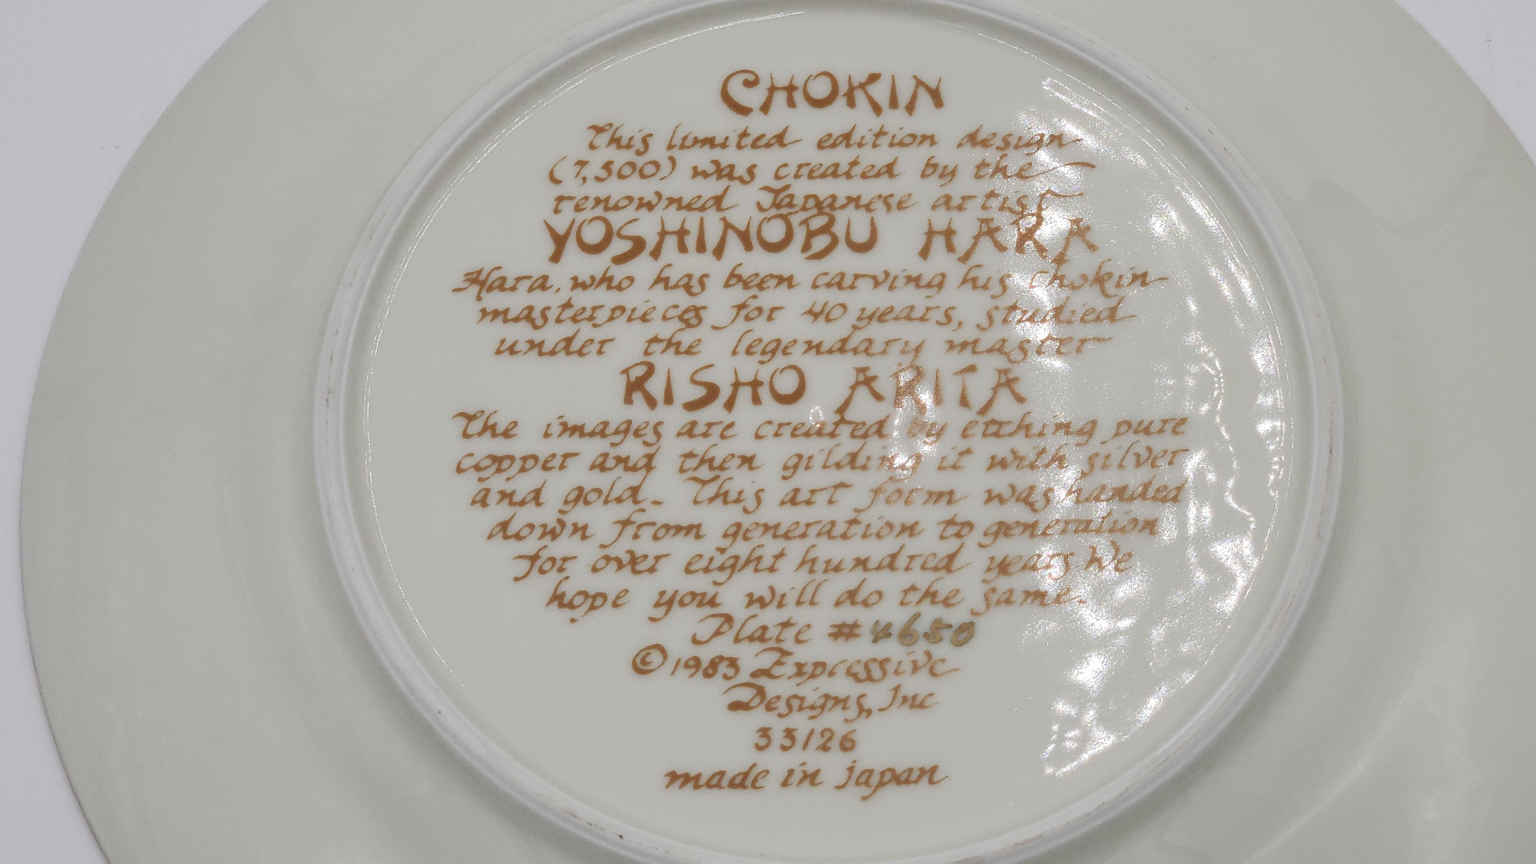 CHOKIN
This limited edition design
(7,500) was created by the
renowned Japanese artist
YOSHINOBU HARA
Hara, who has been carving his chokin
masterpieces for 40 years, studied
under the legendary master
RISHO ARITA
The images are created by etching pure
copper and then gilding it with silver
and gold. This art form was handed
down from generation to generation
for over eight hundred years We
hope you will do the same.
Plate #4650
©1983 Expressive
Designs, Inc
33126
made in japan